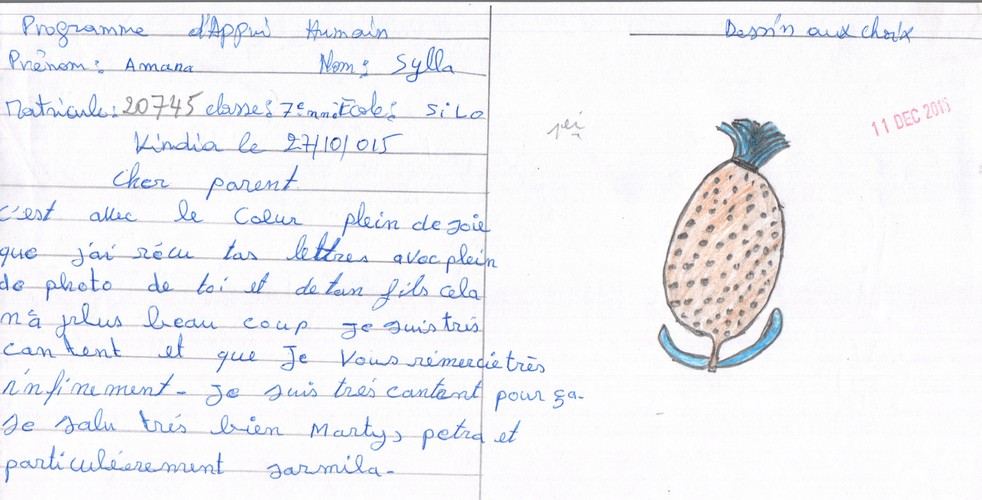 Programme d'Appui Humain
Prénom: Amana Nom: Sylla
Matricule: 20745 classe: 7e École: SiLo
Kindia le 27/10/015
Cher parent
c'est avec le Coeur plein de joie
que j'ai récu tas lettres avec plein
de photo de toi et de tan fils cela
m'a plus beau coup Je suis trés
cantent et que Je Vous rémercie très
n'nfinement - Je suis trés cantent pour ça.
Je salu trés bien Martys petra et
particuléerement jarmila.
Dessin aux choix
11 DEC 2015